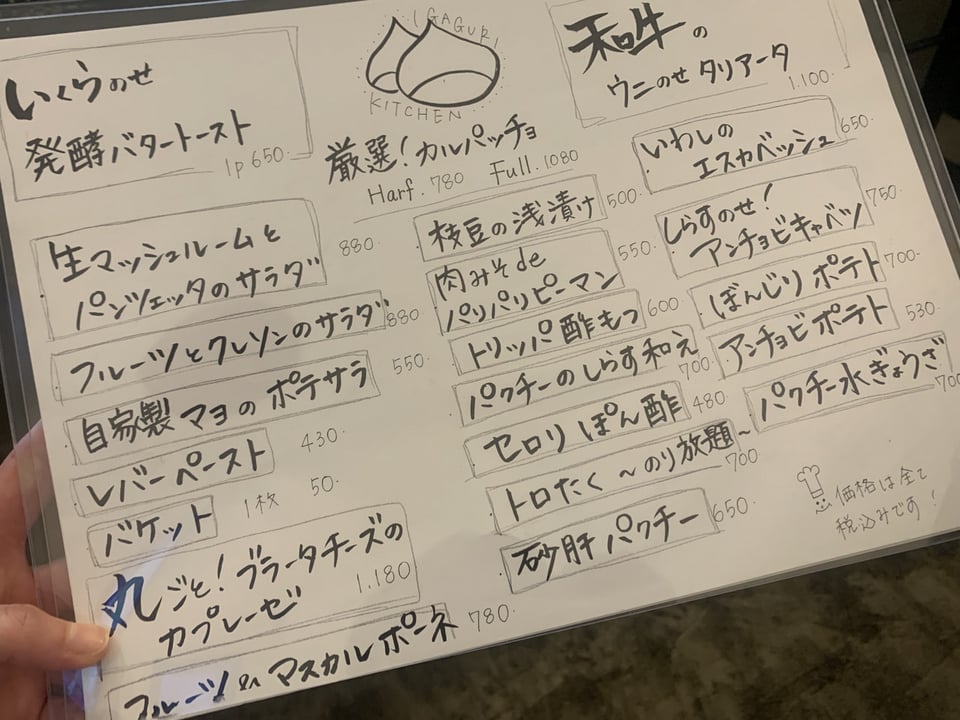 いくらのせ
発酵バタートースト
1p 650.
IGAGURI
KITCHEN
厳選！カルパッチョ
Harf. 780 Full. 1080
和牛の
ウニのせ タリアータ
1.100.
生マッシュルームと
パンツェッタのサラダ
880.
フルーツとクレソンのサラダ 880
自家製マヨのポテサラ 550.
レバーペースト 430.
バケット 1枚 50.
丸ごと！ブラータチーズの
カプレーゼ 1.180
フルーツ in マスカルポーネ 780.
枝豆の浅漬け 500.
肉みそde
パリパリピーマン 550.
トリッパ酢もつ 600
パクチーのしらす和え 700.
セロリぽん酢 480.
トロたく～のり放題～ 700
砂肝パクチー 650.
いわしの
エスカベッシュ 650.
しらすのせ！
アンチョビキャベツ 750
ぼんじりポテト 700.
アンチョビポテト 530.
パクチー水ぎょうざ 700
価格は全て
税込みです！